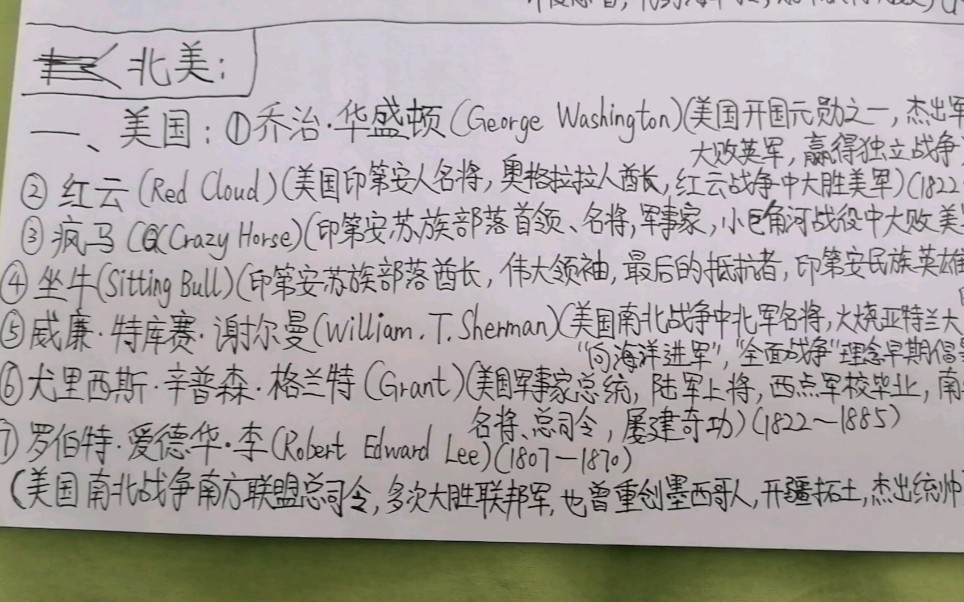 北美:
一、美国:①乔治·华盛顿(George Washington)(美国开国元勋之一,杰出军
大败英军,赢得独立战争
②红云(Red Cloud)(美国印第安人名将,奥格拉拉人酋长,红云战争中大胜美军)(1822
③疯马(Crazy Horse)(印第安苏族部落首领、名将,军事家,小巨角河战役中大败美
④坐牛(Sitting Bull)(印第安苏族部落酋长,伟大领袖,最后的抵抗者,印第安民族英雄
⑤威廉·特库赛·谢尔曼(William.T.Sherman)(美国南北战争中北军名将,火烧亚特兰大
"向海洋进军","全面战争"理念早期倡
⑥尤里西斯·辛普森·格兰特(Grant)(美国军事家总统,陆军上将,西点军校毕业,南
名将、总司令,屡建奇功)(1822~1885)
⑦罗伯特·爱德华·李(Robert Edward Lee)(1807—1870)
(美国南北战争南方联盟总司令,多次大胜联邦军,也曾重创墨西哥人,开疆拓土,杰出统帅